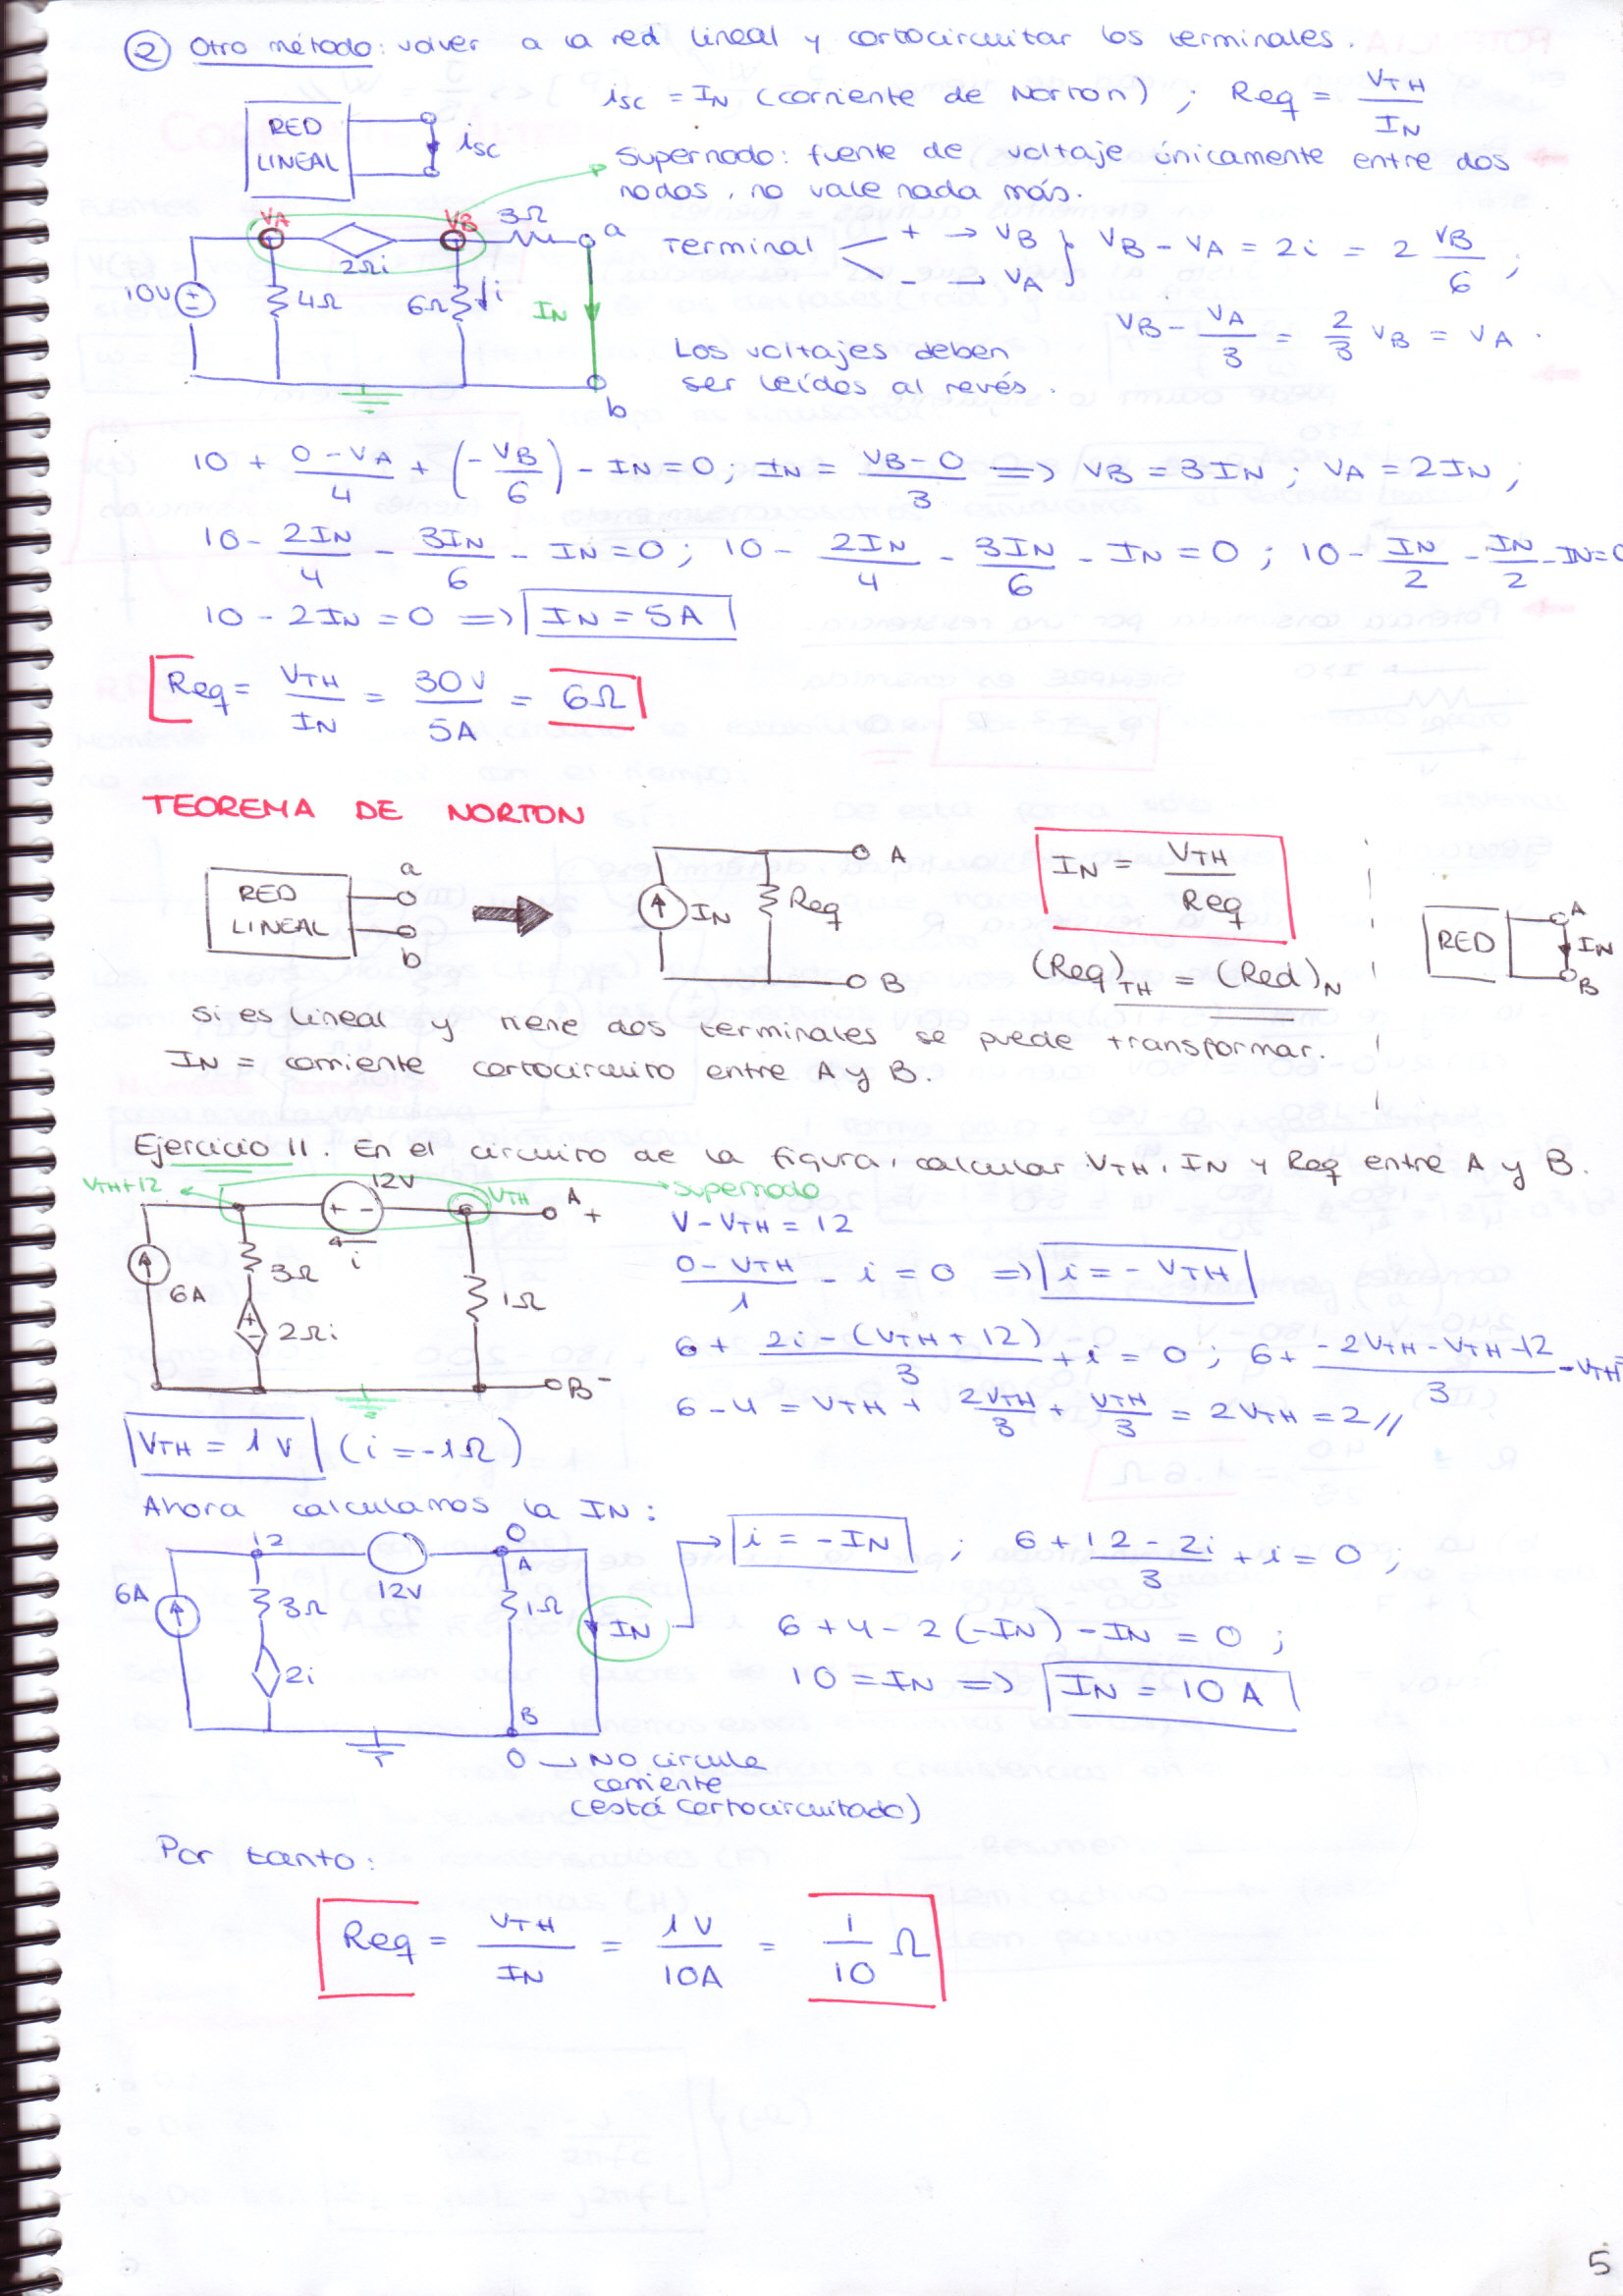 ② Otro método: volver a la red lineal y cortocircuitar los terminales.
RED LINEAL
isc
isc = IN (corriente de Norton) ; Req = VTH / IN
Supernodo: fuente de voltaje únicamente entre dos
nodos, no vale nada más.
VA
VB
3Ω
a
2Ωi
10V
4Ω
6Ω
i
IN
b
Terminal + → VB
- → VA
} VB - VA = 2i = 2 VB/6 ;
VB - VA/3 = 2/3 VB = VA .
Los voltajes deben
ser leídos al revés.
10 + (0 - VA)/4 + (-VB/6) - IN = 0 ; IN = (VB - 0)/3 => VB = 3IN ; VA = 2IN ;
10 - 2IN/4 - 3IN/6 - IN = 0 ; 10 - 2IN/4 - 3IN/6 - IN = 0 ; 10 - IN/2 - IN/2 - IN = 0
10 - 2IN = 0 => IN = 5A
Req = VTH/IN = 30V/5A = 6Ω
TEOREMA DE NORTON
RED LINEAL
a
b
IN
Req
A
B
IN = VTH / Req
(Req)TH = (Red)N
RED
A
IN
B
si es lineal y tiene dos terminales se puede transformar.
IN = corriente cortocircuito entre A y B.
Ejercicio 11. En el circuito de la figura, calcular VTH, IN y Req entre A y B.
VTH+12
12V
VTH
A
+
supernodo
+ -
i
6A
3Ω
1Ω
+
-
2Ωi
B -
V - VTH = 12
(0 - VTH)/1 - i = 0 => i = - VTH
6 + (2i - (VTH + 12))/3 + i = 0 ; 6 + (-2VTH - VTH - 12)/3 - VTH =
6 - 4 = VTH + 2VTH/3 + VTH/3 = 2VTH = 2 //
VTH = 1 V (i = -1Ω)
Ahora calculamos la IN:
12
0
A
6A
12V
3Ω
1Ω
IN
2i
B
0 → NO circula
corriente
(está cortocircuitado)
i = -IN ; 6 + (12 - 2i)/3 + i = 0 ;
6 + 4 - 2(-IN) - IN = 0 ;
10 = IN => IN = 10 A
Por tanto:
Req = VTH/IN = 1V/10A = 1/10 Ω
5